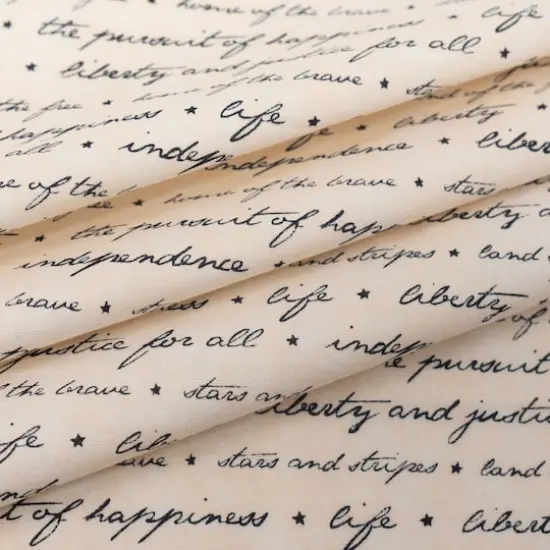 ★ home of the brave ★ life
★ the pursuit of happiness ★
★ liberty and justice for all ★
the free ★ home of the brave ★ stars
happiness ★ life ★ liberty
all ★ indep independence ★ liber
of the ★ home of the brave ★ stars
★ the pursuit of hap liberty
independence ★ and stripes ★ land
brave ★ ★ life ★ liberty
justice for all ★ indep pursuit
of the brave ★ stars and liberty and justi
life ★ lib
★ stars and stripes ★ land
of happiness ★ life ★ libert